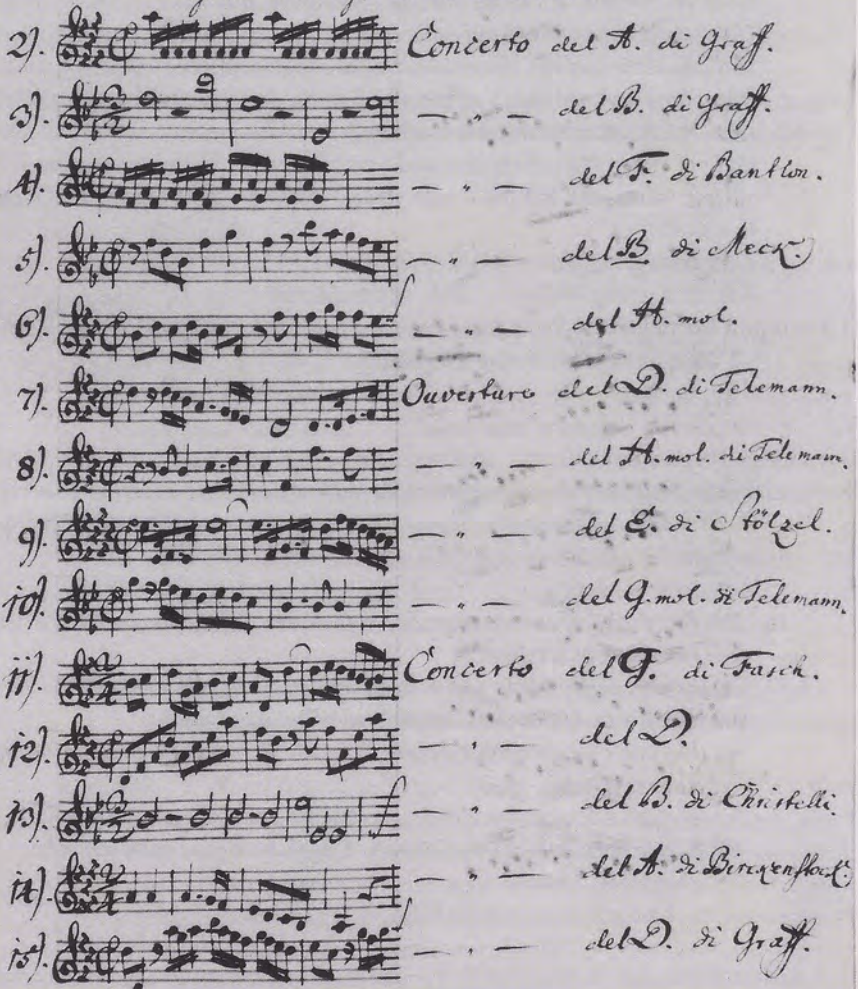 2). Concerto del A. di Graff.
3). — „ — del B. di Graff.
4). — „ — del F. di
5). — „ — del B di Meck.
6). — „ — del H. mol.
7). Ouverture del D. di Telemann.
8). — „ — del H. mol. di Telemann.
9). — „ — del E. di Stölzel.
10). — „ — del G. mol. di Telemann.
11). Concerto del G. di Fasch.
12). — „ — del D.
13). — „ — del B. di Christelli.
14). — „ — del A. di Birckenstock.
15). — „ — del D. di Graff.